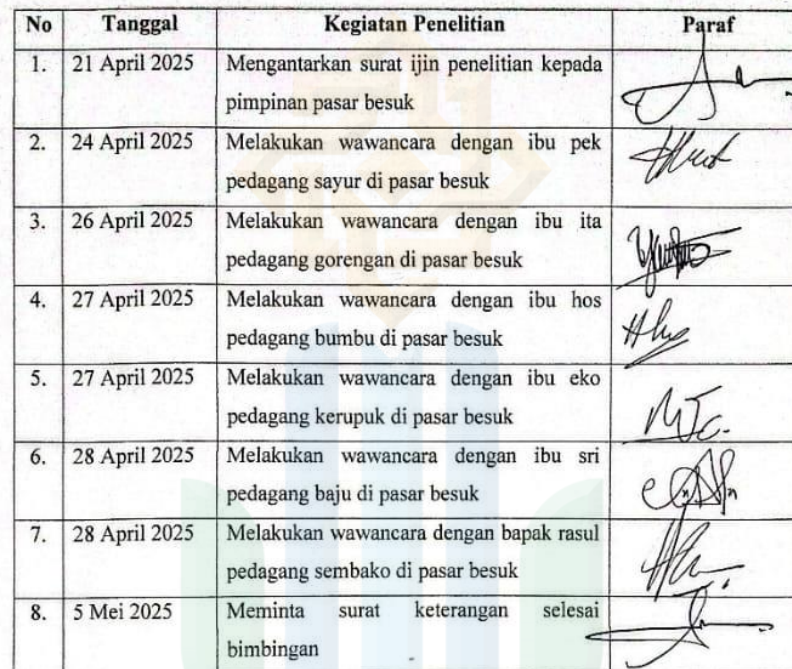 No Tanggal Kegiatan Penelitian Paraf
1. 21 April 2025 Mengantarkan surat ijin penelitian kepada
pimpinan pasar besuk
2. 24 April 2025 Melakukan wawancara dengan ibu pek
pedagang sayur di pasar besuk
3. 26 April 2025 Melakukan wawancara dengan ibu ita
pedagang gorengan di pasar besuk
4. 27 April 2025 Melakukan wawancara dengan ibu hos
pedagang bumbu di pasar besuk
5. 27 April 2025 Melakukan wawancara dengan ibu eko
pedagang kerupuk di pasar besuk
6. 28 April 2025 Melakukan wawancara dengan ibu sri
pedagang baju di pasar besuk
7. 28 April 2025 Melakukan wawancara dengan bapak rasul
pedagang sembako di pasar besuk
8. 5 Mei 2025 Meminta surat keterangan selesai
bimbingan